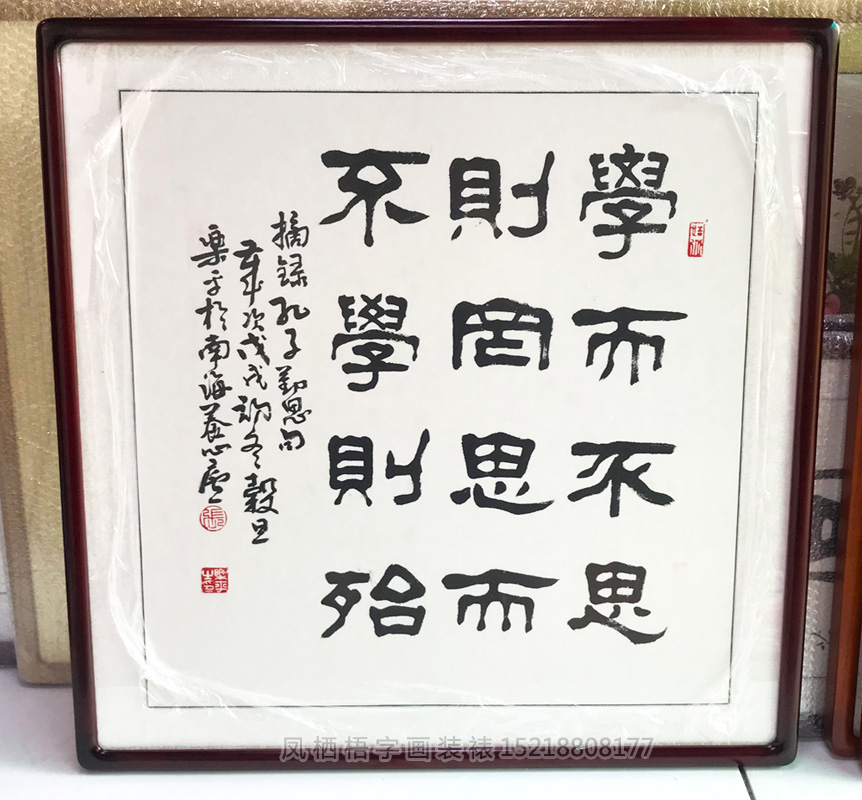 學而不思
則罔思而
不學則殆
摘録孔子勤思句
歲次戊戌初冬穀旦
於南海養心廬
張
凤栖梧字画装裱15218808177